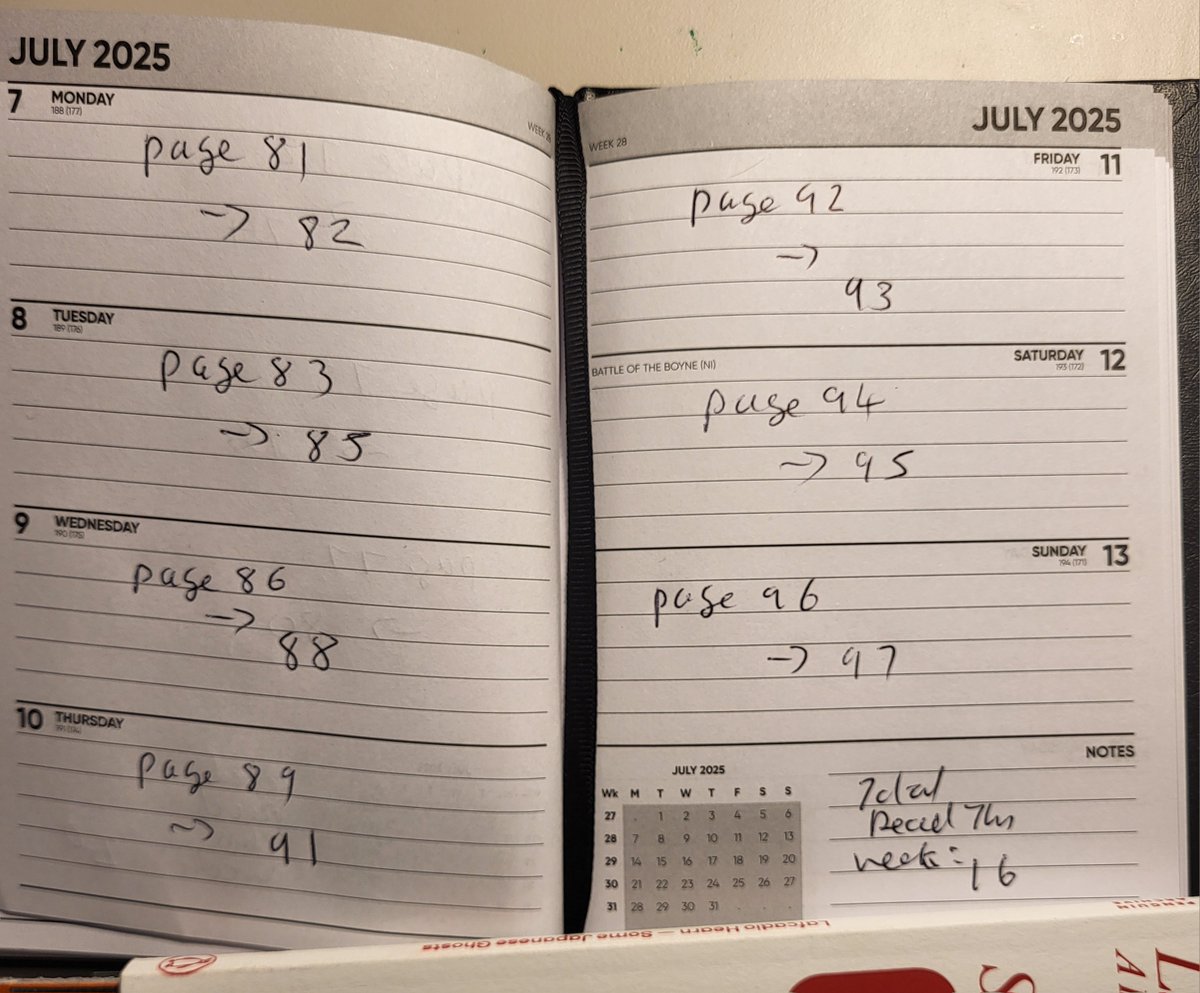 JULY 2025
7 MONDAY
188 (177)
WEEK 28
page 81
→ 82
8 TUESDAY
189 (176)
page 83
→ 85
9 WEDNESDAY
190 (175)
page 86
→
88
10 THURSDAY
191 (174)
page 89
→ 91
JULY 2025
WEEK 28
FRIDAY 11
192 (173)
page 92
→
93
BATTLE OF THE BOYNE (NI)
SATURDAY 12
193 (172)
page 94
→ 95
SUNDAY 13
194 (171)
page 96
→ 97
JULY 2025
Wk M T W T F S S
27 . 1 2 3 4 5 6
28 7 8 9 10 11 12 13
29 14 15 16 17 18 19 20
30 21 22 23 24 25 26 27
31 28 29 30 31 . . .
NOTES
Total
This
week = 16
Lafcadio Hearn – Some Japanese Ghosts